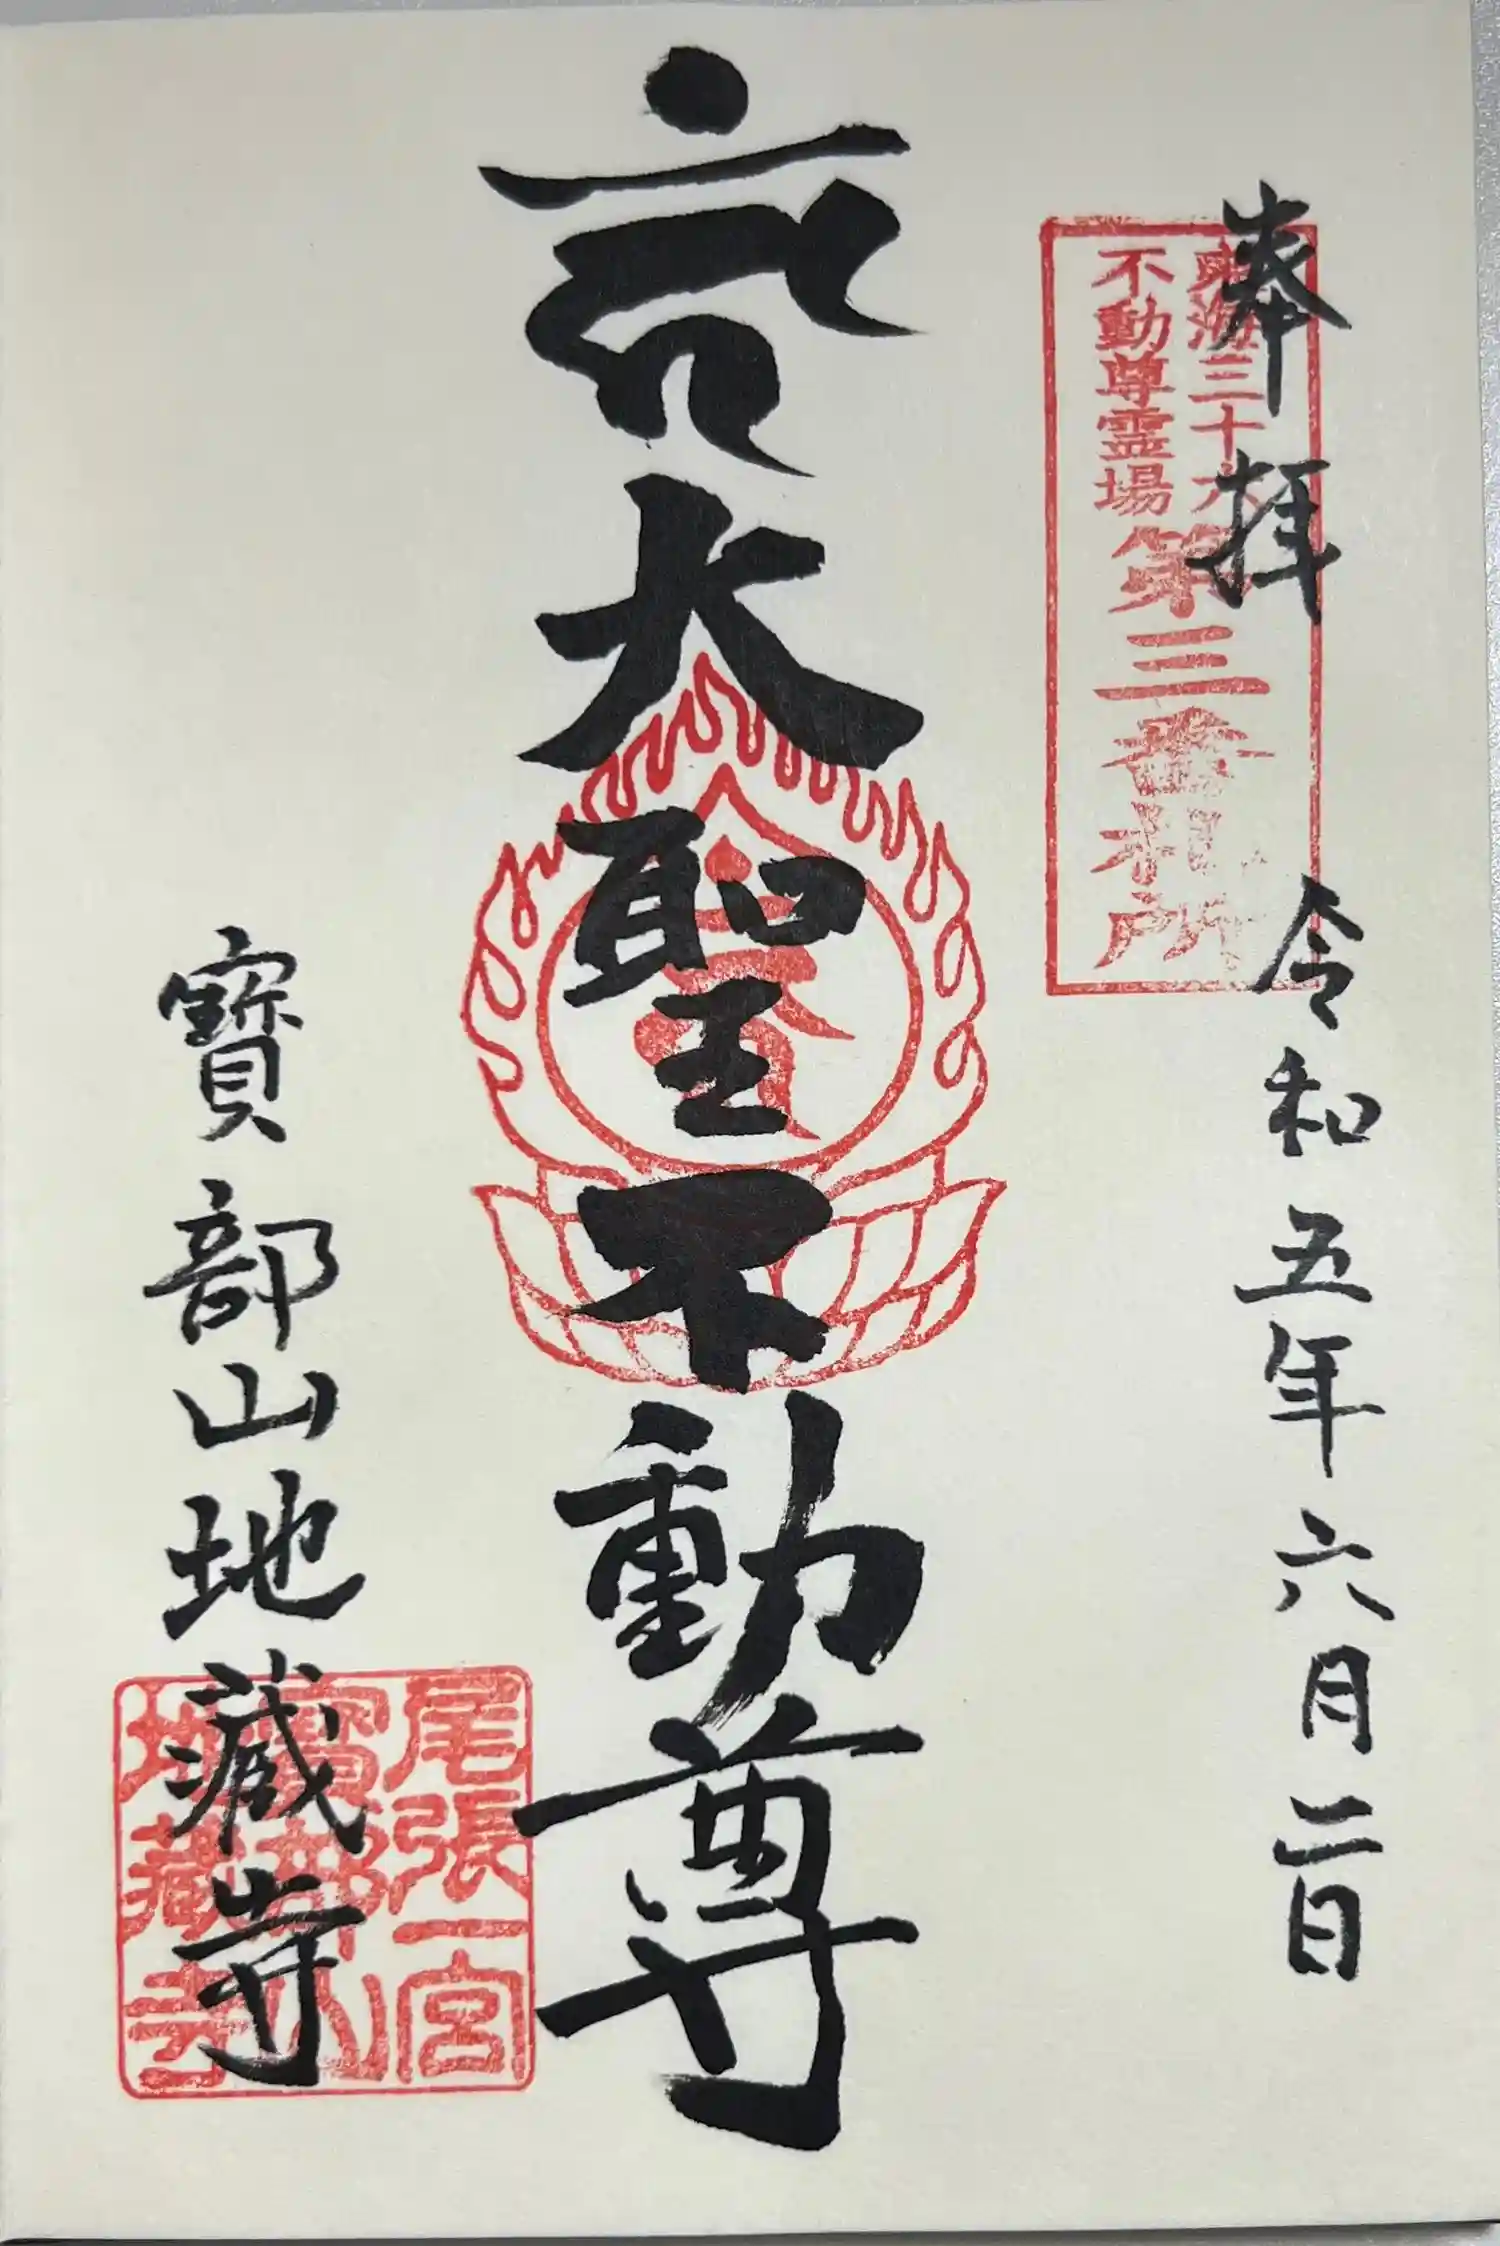 奉拝
令和五年六月二日
東海三十六
不動尊霊場
第三番札所
大聖不動尊
寳部山地蔵寺
尾張一宮
寳部山
地蔵寺